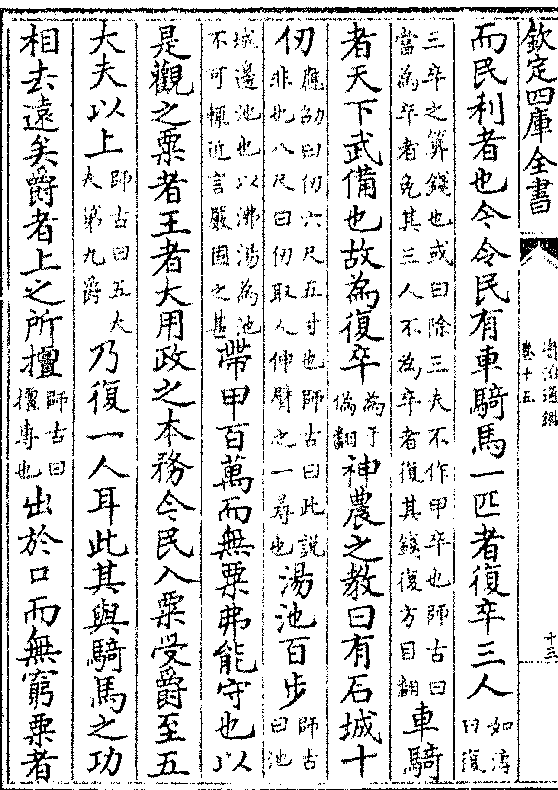 欽定四庫全書
資治通鑑
卷十五
十三
而民利者也今令民有車騎馬一匹者復卒三人如淳曰復
三卒之算錢也或曰除三夫不作甲卒也師古曰當為卒者免其三人不為卒者復其錢復方目翻車騎
者天下武備也故為復卒為于偽翻神農之教曰有石城十
仞應劭曰仞六尺五寸也師古曰此説非也八尺曰仞取人伸臂之一尋也湯池百步師古曰池
城邊池也以沸湯為池不可輒近言嚴固之甚帶甲百萬而無粟弗能守也以
是觀之粟者王者大用政之本務令民入粟受爵至五
大夫以上師古曰五大夫第九爵乃復一人耳此其與騎馬之功
相去遠矣爵者上之所擅師古曰擅專也出於口而無窮粟者